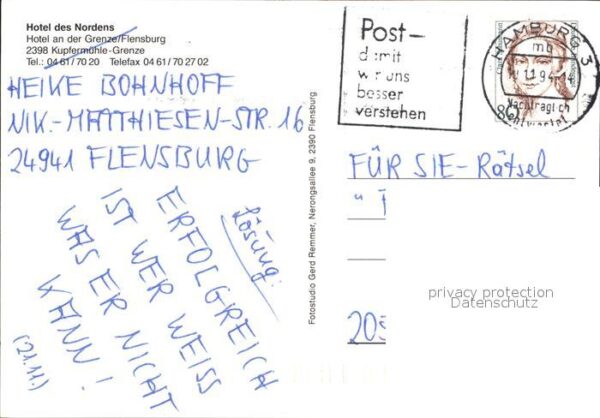 Hotel des Nordens
Hotel an der Grenze/Flensburg
2398 Kupfermühle-Grenze
Tel.: 04 61/70 20 Telefax 04 61/70 27 02
HEIKE BOHNHOFF
NIK.-MATTHIESEN-STR. 16
24941 FLENSBURG
Lösung:
ERFOLGREICH
IST WER WEISS
WAS ER NICHT
KANN!
(21.11.)
Fotostudio Gerd Remmer, Nerongsallee 9, 2390 Flensburg
Post-
damit
wir uns
besser
verstehen
HAMBURG 3
mg
11.94-14
Nachträglich
entwertet
80
FÜR SIE-Rätsel
privacy protection
Datenschutz
205